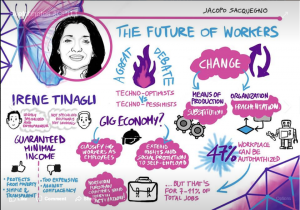 JACOPO SACQUEGNO
THE FUTURE OF WORKERS
A GREAT
DEBATE
TECHNO-OPTIMISTS
VS
TECHNO-PESSIMISTS
CHANGE
MEANS OF
PRODUCTION
SUBSTITUTION
ORGANIZATION
FRAGMENTATION
IRENE TINAGLI
GUARANTEED
MINIMAL
INCOME
PROTECTS
FROM POVERTY
SIMPLE &
TRANSPARENT
TOO EXPENSIVE
AGAINST
CONTINGENCY
GIG ECONOMY?
CLASSIFY GIG
WORKERS AS
EMPLOYEES
EXTEND
RIGHTS AND
SOCIAL PROTECTION
TO SELF-EMPLOYED
47%
WORKPLACE
CAN BE
AUTOMATIZED
...BUT THAT'S
FOR 7-11% OF
TOTAL JOBS